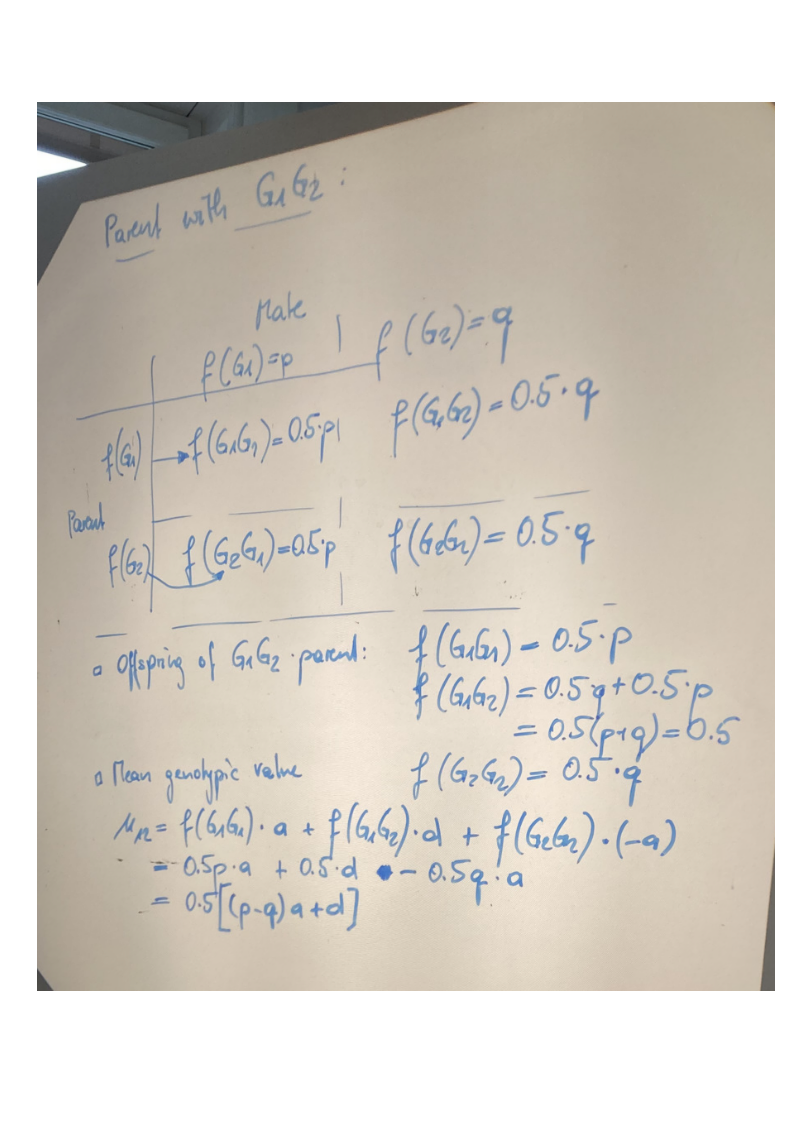 Parent with G₁G₂ :
Mate
f(G₁)=p | f(G₂)=q
f(G₁) f(G₁G₁)=0.5·p f(G₁G₂)=0.5·q
Parent
f(G₂) f(G₂G₁)=0.5·p f(G₂G₂)=0.5·q
Offspring of G₁G₂ parent: f(G₁G₁) = 0.5·p
f(G₁G₂) = 0.5·q+0.5·p
= 0.5(p+q)=0.5
f(G₂G₂)= 0.5·q
Mean genotypic value
μ₁₂= f(G₁G₁)·a + f(G₁G₂)·d + f(G₂G₂)·(-a)
= 0.5p·a + 0.5·d - 0.5q·a
= 0.5[(p-q)a+d]